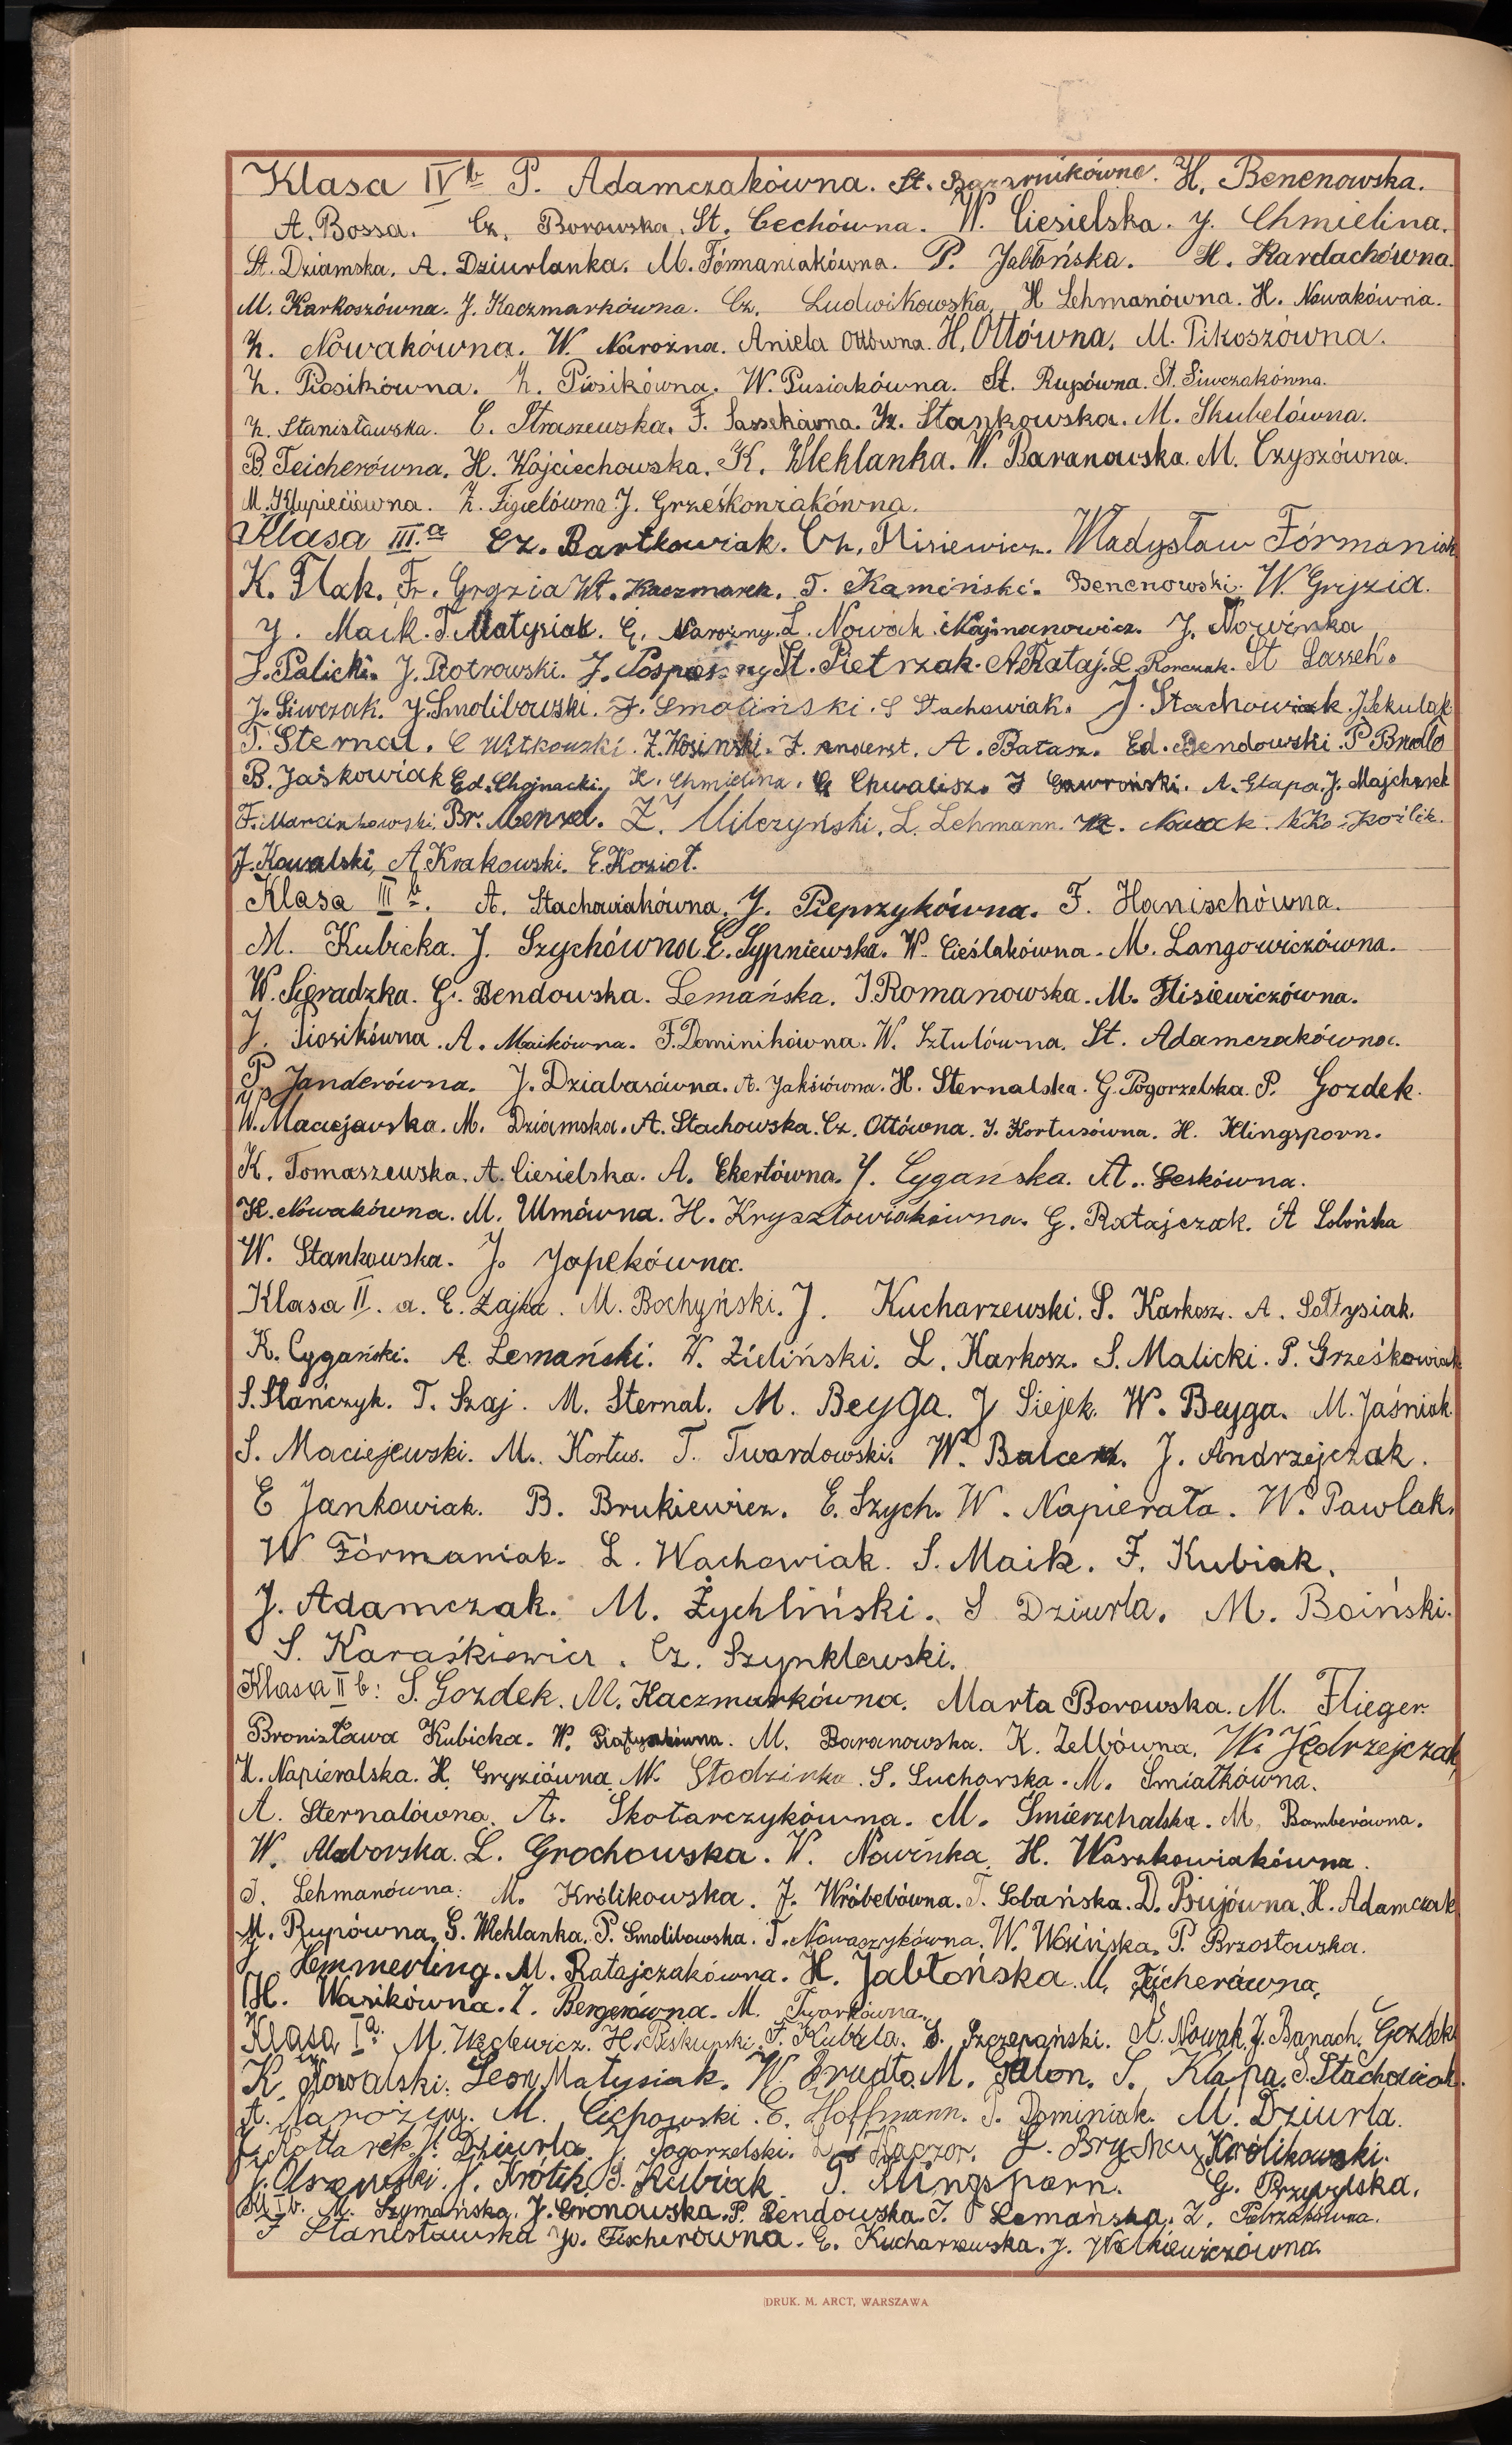 Klasa IVb P. Adamczakówna. St. H. Benenowska.
A. Bossa. Cz. Borowska. St. Cechówna. W. Ciesielska. J. Chmielina.
St. Dziamska. A. Dziurlanka. M. Fórmaniakówna. P. Jabłońska. H. Kardachówna.
M. Karkoszówna. J. Kaczmarkówna. Cz. Ludwikowska. H Lehmanówna. H. Nowakówna.
Z. Nowakówna. W. Narożna. Aniela Ottówna. H. Ottówna. M. Pikoszówna.
Z. Piosikówna. Z. Piosikówna. W. Pusiakówna. St. Rupówna. St. Siwczakówna.
Z. Stanisławska. C. Straszewska. F. Sassekówna. Cz. Stankowska. M. Skubelówna.
B. Teicherówna. H. Wojciechowska. K. Weklanka. W. Baranowska. M. Czyszówna.
M. Klupieciówna. Z. Figielówna J. Grześkowiakówna.
Klasa III.a Cz. Bartkowiak. Cz. Flisiewicz. Władysław Fórmaniak
K. Flak. Fr. Gryzia Wł. Kaczmarek. T. Kamiński. Benenowski. W. Gryzia.
J. Maik. T. Matysiak. E. Narożny. L. Nowak. J. Nowinka
J. Palicki. J. Piotrowski. J. Pospieszny St. Pietrzak. A. Rataj. L. Konczak. St Sassek.
J. Siwczak. J. Smolibowski. F. Smoliński. S Stachowiak. J. Stachowiak. J. Sekulak
T. Sternal. C Witkowski. Z. Wosiński. F. Anderst. A. Batasz. Ed. Bendowski. P Brudło
B. Jaśkowiak Ed. Chojnacki. K. Chmielina. G Chwalisz. J Gawroński. A. Glapa. J. Majchszak
F. Marcinkowski. Br. Menzel. Z. Milczyński. L. Lehmann. Nowak.
J. Kowalski, A. Krakowski. E. Kozioł.
Klasa III b. A. Stachowiakówna. J. Pieprzykówna. F. Hanischówna.
M. Kubicka. J. Szychówna. E. Sypniewska. W. Cieślakówna. M. Langowiczówna.
W. Sieradzka. G. Bendowska. Lemańska. J. Romanowska. M. Flisiewiczówna.
J. Piosikówna. A. Maikówna. F. Dominikówna. W. Sztulówna. St. Adamczakówna.
P. Janderówna. J. Dziabasówna. A. Jaksiówna. H. Sternalska. G. Pogorzelska. P. Gozdek.
W. Maciejewska. M. Dziamska. A. Stachowska. Cz. Ottówna. J. Kortusówna. H. Klingsporn.
K. Tomaszewska. A. Ciesielska. A. Ekertówna. J. Cygańska. A. Leskówna.
K. Nowakówna. M. Umówna. H. Krysztowiakówna. G. Ratajczak. A Sobońska
W. Stankowska. J. Japekówna.
Klasa II. a. E. Zajka. M. Bochyński. J. Kucharzewski. S. Karkosz. A. Sołtysiak.
K. Cygański. A. Lemański. W. Zieliński. L. Karkosz. S. Malicki. P. Grześkowiak
S. Stańczyk. T. Szaj. M. Sternal. M. Beyga. J Siejek. W. Beyga. M. Jaśniak.
S. Maciejewski. M. Kortus. T. Twardowski. W. Balcer. J. Andrzejczak.
E Jankowiak. B. Brukiewicz. E. Szych. W. Napierała. W. Pawlak.
W Fórmaniak. L. Wachowiak. S. Maik. F. Kubiak.
J. Adamczak. M. Żychliński. S Dziurla. M. Boiński.
S. Karaśkiewicz. Cz. Szynklewski.
Klasa II b: S. Gozdek. M. Kaczmarkówna. Marta Borowska. M. Flieger.
Bronisława Kubicka. W. M. Baranowska. K. Zellówna. W. Jędrzejczak
K. Napieralska. H. Gryziówna. W. Słodzinka. S. Sucharska. M. Śmiałkówna.
A. Sternalówna. A. Skotarczykówna. M. Śmierzchalska. M. Bamberówna.
W. Maborska. L. Grochowska. W. Nowinka. H. Waszkowiakówna.
J. Lehmanówna. M. Królikowska. J. Wróbelówna. T. Sobańska. D. Bujówna. H. Adamczak
M. Rupówna. G. Weklanka. P. Smolibowska. T. Nowaczykówna. W. Wosińska. P. Brzostowska.
J Hemmerling. M. Ratajczakówna. H. Jabłońska. M. Teicherówna.
H. Wasikówna. I. Bergerówna. M. Tworkówna.
Klasa Ia. M. Węclewicz. H. Biskupski. F. Kubzla. S. Szczepański. A. Nowak. J. Banach. Gozdek
K. Kowalski. Leon Matysiak. W. Brudło. M. Galon. S. Klapa. S. Stachowiak.
A. Narożny. M. Cichowski. E. Hoffmann. T. Dominiak. M. Dziurla.
J. Kottarek. J. Dziurla. J. Pogorzelski. L. Kaczor. L. Królikowski.
J. Olszewski. J. Królik. B. Kubiak. T. Klingsporn. G. Przybylska.
Kl I b. M. Szymańska. J. Gronowska. P. Bendowska. T. Lemańska. Z. Pietrzakówna.
F Stanisławska W. Fischerówna. E. Kucharzewska. J. Walkiewiczówna.
DRUK. M. ARCT, WARSZAWA